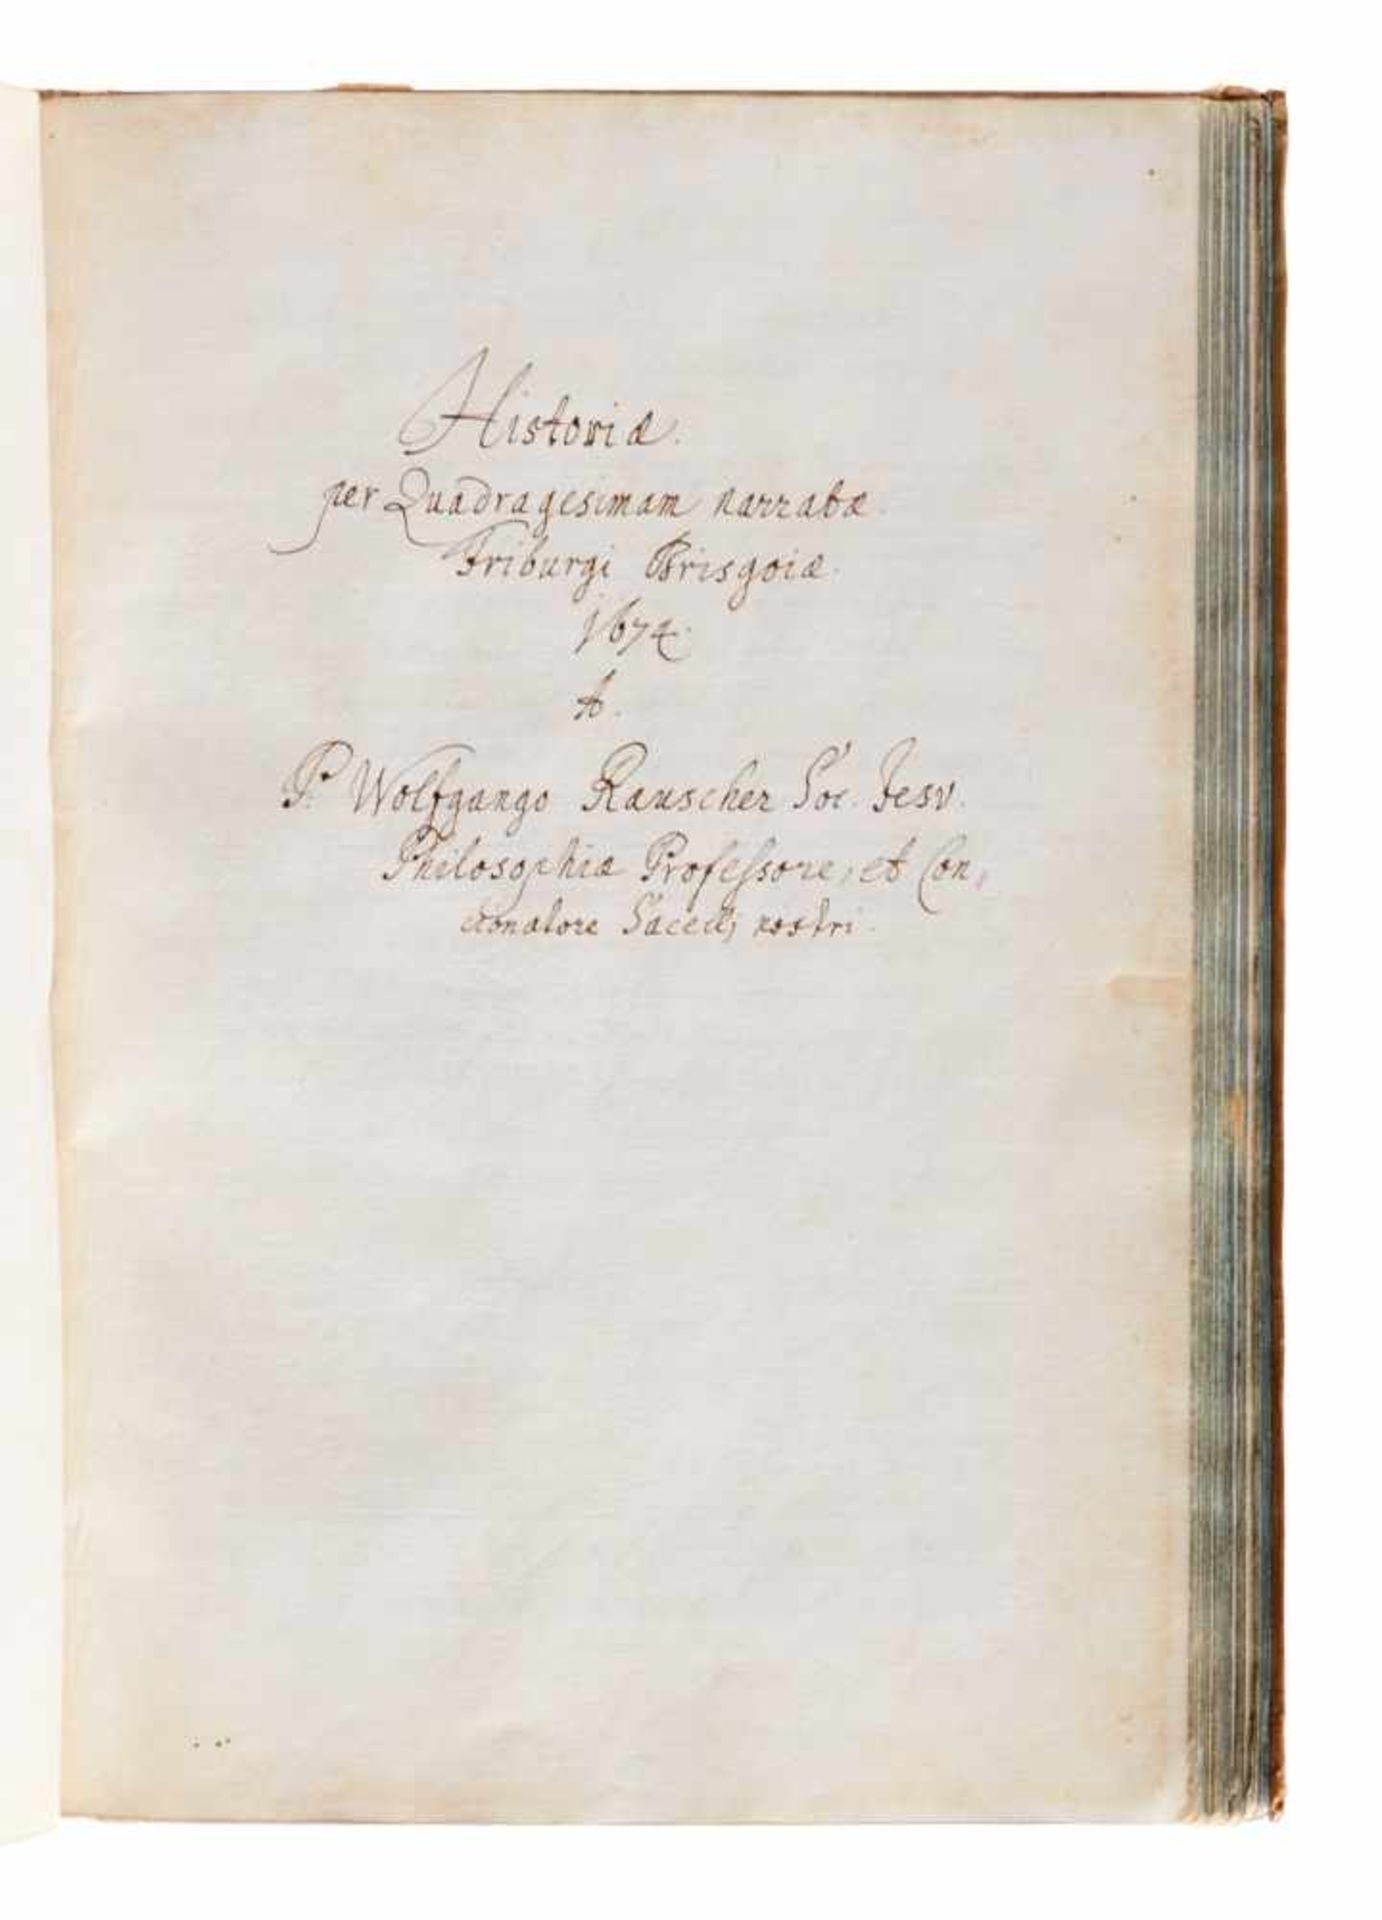 Historiæ.
per Quadragesimam narratæ.
Friburgi Brisgoiæ.
1674.
A.
P. Wolfgango Rauscher Soc. Jesv.
Philosophiæ Professore, et Con,
cionatore nostri.